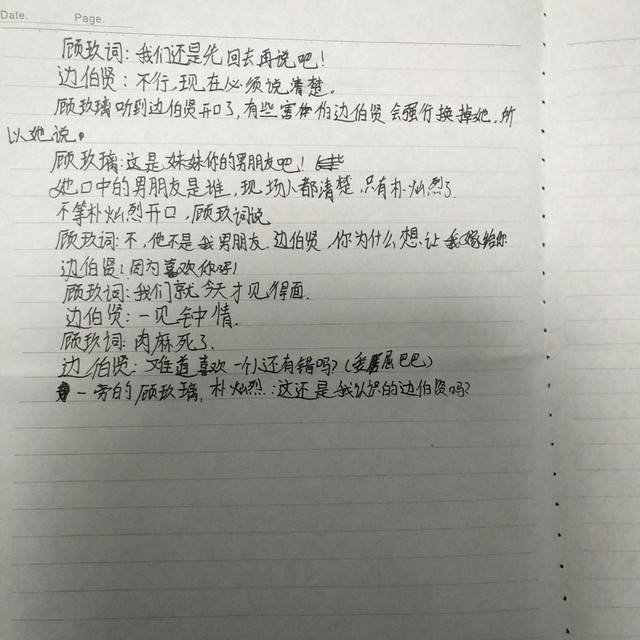 Date. Page.
顾玖词：我们还是先回去再说吧！
边伯贤：不行，现在必须说清楚。
顾玖璃听到边伯贤开口了，有些害怕边伯贤会强行换掉她，所
以她说。
顾玖璃：这是妹妹你的男朋友吧！
她口中的男朋友是谁，现场人都清楚，只有朴灿烈了
不等朴灿烈开口，顾玖词说
顾玖词：不，他不是我男朋友，边伯贤，你为什么想让我嫁给你
边伯贤：因为喜欢你呀！
顾玖词：我们就今天才见得面．
边伯贤：一见钟情．
顾玖词：肉麻死了．
边伯贤：难道喜欢一个人还有错吗？（委屈巴巴）
一旁的顾玖璃，朴灿烈：这还是我认识的边伯贤吗？